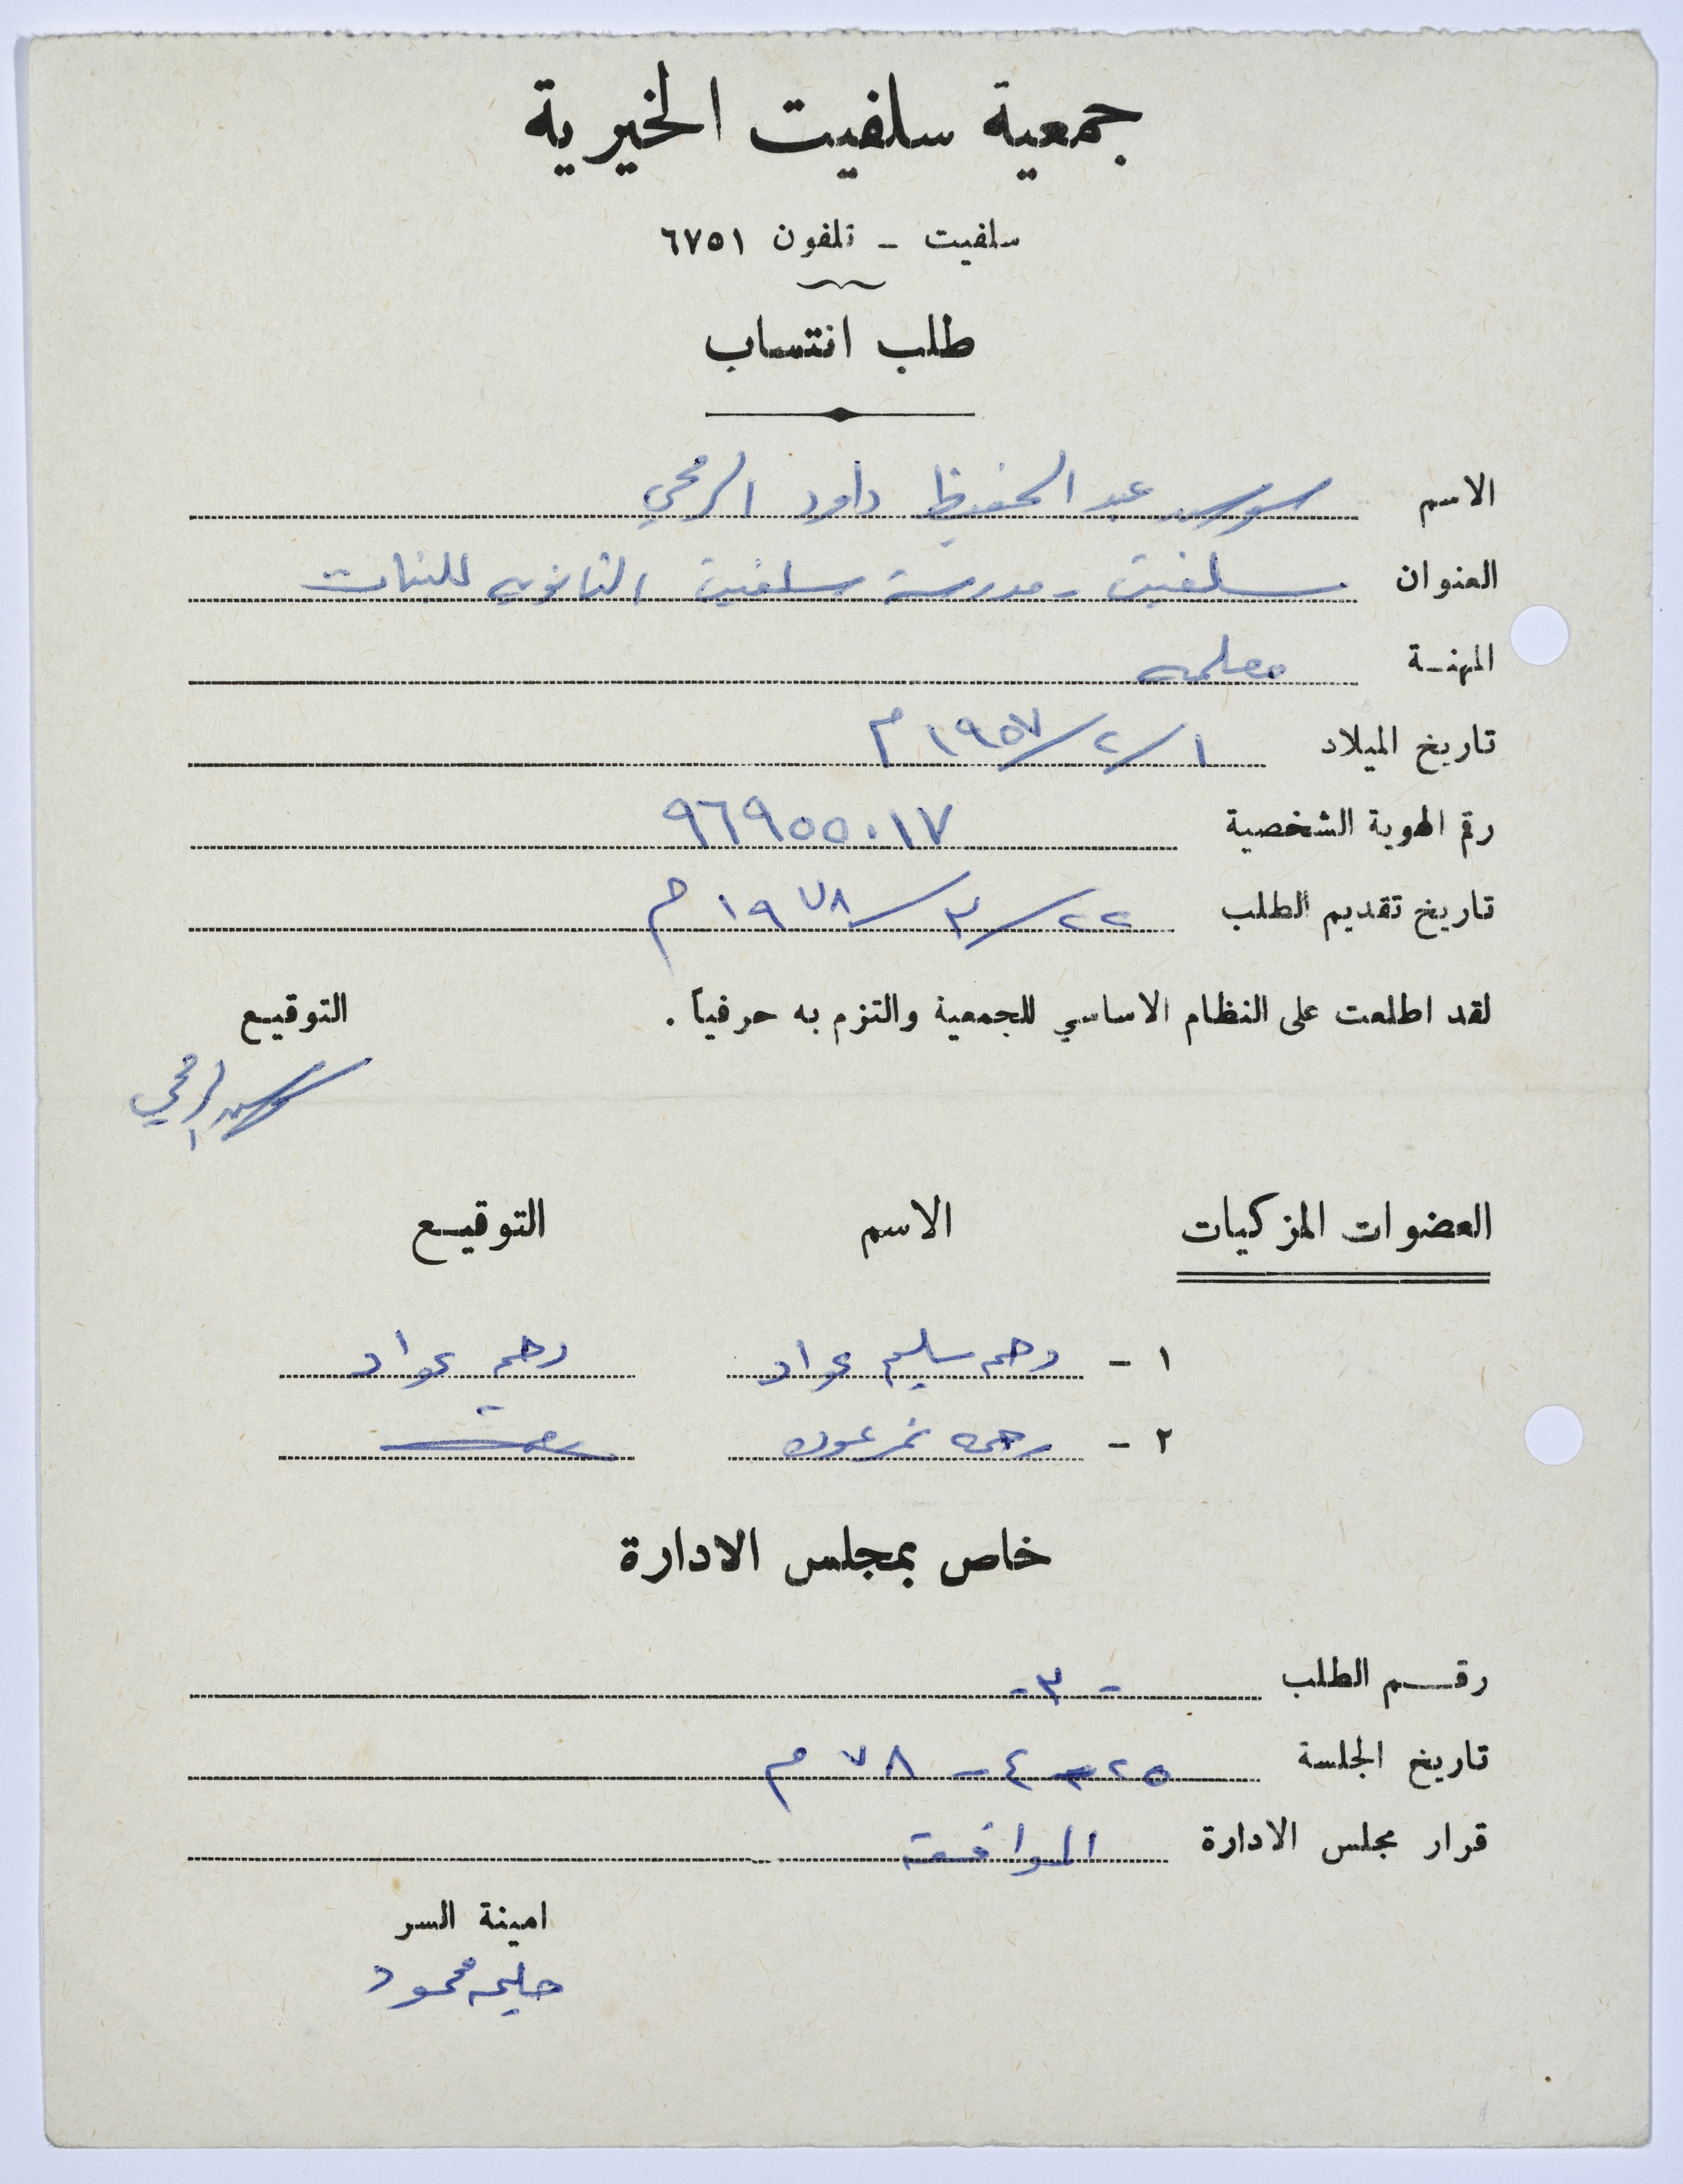 جمعية سلفيت الخيرية
سلفيت - تلفون ٦٧٥١
طلب انتساب
الاسم سوسن عبد الحفيظ داود الرمحي
العنوان سلفيت - مدرسة سلفيت الثانويه للبنات
المهنة معلمه
تاريخ الميلاد ١/٢/١٩٥٧ م
رقم الهوية الشخصية ٩٦٩٥٥٠١٧
تاريخ تقديم الطلب ٢٢/٣/١٩٧٨ م
لقد اطلعت على النظام الاساسي للجمعية والتزم به حرفياً . التوقيع
سوسن الرمحي
العضوات المزكيات الاسم التوقيع
١ - سليم عواد عواد
٢ - نمر
خاص بمجلس الادارة
رقم الطلب - ٣ -
تاريخ الجلسة ٢٥ - ٤ - ٧٨ م
قرار مجلس الادارة الموافقة
امينة السر
حليمه محمود